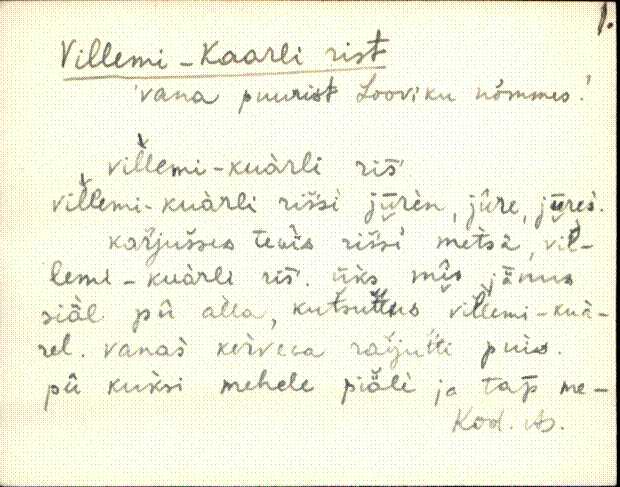 1.
Villemi-Kaarli rist
'vana puurist Looviku nõmmes.'
villemi-kuàrli ris̄'
villemi-kuàrli riššì jūrèn, jûre, jūrès.
karjusseᴅ teùìᴅ riššì metsä, vil-
lemi-kuàrli ris̄'. üks mîs jänuᴅ
siäl pû alla, kutsuttuᴅ villemi-kuà-
rel. vanàs kèrvega raijutti puìᴅ.
pû kukši mehele piälè ja tap̄ me-
Kod. As.